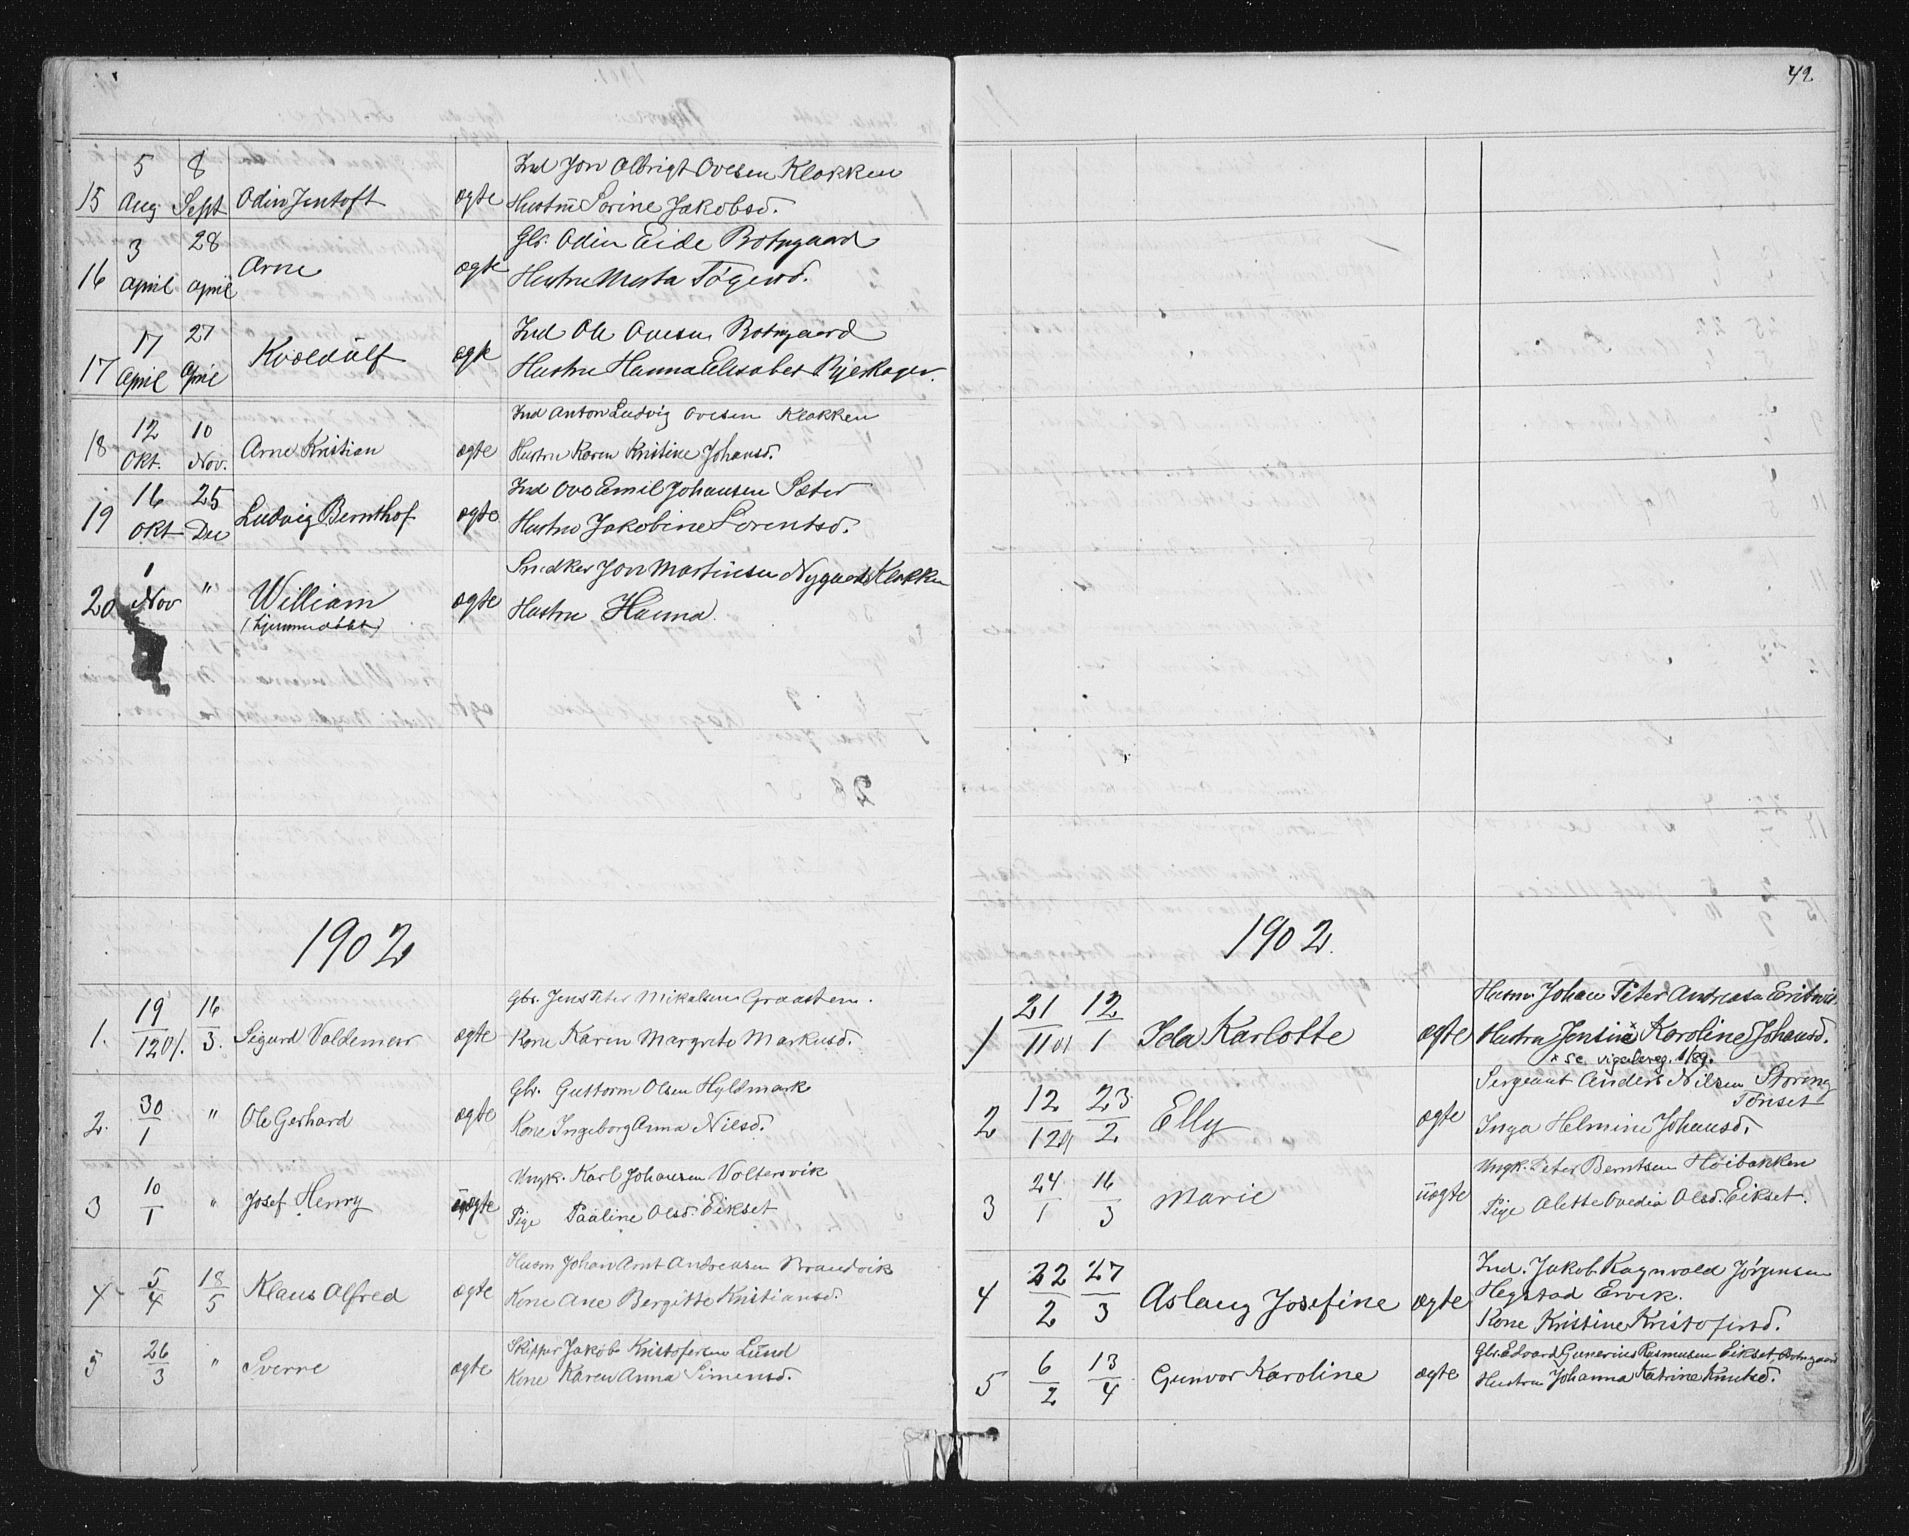 42
5 8
15 Aug Sept Odin Jentoft ægte Ind Jon Albrigt Ovesen Klakken
Hustru Sorine Jakobsd.
3 28
16 April April Arne ægte Gbr. Odin Eide Botngaard
Hustru Marta
17 27
17 April April Kvoeldulf ægte Ind Ole Ovesen Botngaard
Hustru Hanna Elisabet
12 10
18 Okt. Nov. Arne Kristian ægte Ind Anton Ludvig Ovesen Klakken
Hustru Karen Kristine Johansd.
16 25
19 Okt Dec Ludvig Bernthof ægte Ind Ove Emil Johansen Sæter
Hustru Jakobine Lorentsd.
1
20 Nov " William ægte Snedker Jon Martinsen Nygaard Klakken
(hjemmedøbt) Hustru Hanna.
1902
1. 19/12 01. 16/3. Sigurd Valdemar ægte Gbr. Jens Peter Mikalsen Graasten.
Kone Karen Margrete Markusd.
2. 30/1 " Ole Gerhard ægte Gbr. Guttorm Olsen Hyldmark
Kone Ingeborg Anna Nilsd.
3 10/1 " Josef Henry uægte Ungk. Karl Johansen Voltersvik
Pige Pauline Olsd. Eikset
4 5/4 18/5 Klaus Alfred ægte Husm Johan Arnt Andreasen Brandvik
Kone Ane Bergitte Kristiansd.
5 26/3 " Sverre ægte Skipper Jakob Kristofersen Lund
Kone Karen Anna Simensd.
1902.
1 21/11 01 12/1 Ida Karlotte ægte Husm. Johan Peter Andreasen
Hustru Jensine* Karoline Johansd.
* se vigselsreg. 1/89.
2 12/12 01 23/2 Elly ægte Sergeant Anders Nilsen Storeng
Tønset
Inga Helmine Johansd.
3 24/1 16/3 Marie uægte Ungk. Peter Berntsen Høibakken
Pige Alette Ovedia Olsd. Eikset.
4 22/2 27/3 Aslaug Josefine ægte Ind. Jakob Ragnvald Jørgensen
Hegstad Ervik.
Kone Kristine Kristofersd.
5 6/2 13/4 Gunvor Karoline ægte Gbr. Edvard Gunerius Rasmusen Eikset, Botngaard
Hustru Johanna Katrine Knutsd.